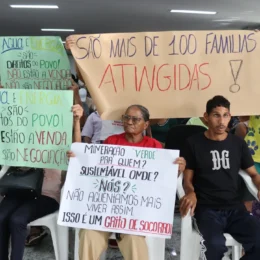 SÃO MAIS DE 100 FAMILIAS
ATINGIDAS!
SÃO
DIREITOS DO POVO!
NÃO ESTÃO A VENDA
DO POVO!
ESTÃO A VENDA
NEGOCIAÇÃO
MINERAÇÃO VERDE
PARA QUEM?
SUSTENTÁVEL ONDE?
NÓS?
NÃO AGUENTAMOS MAIS
VIVER ASSIM.
ISSO É UM GRITO DE SOCORRO!
DG